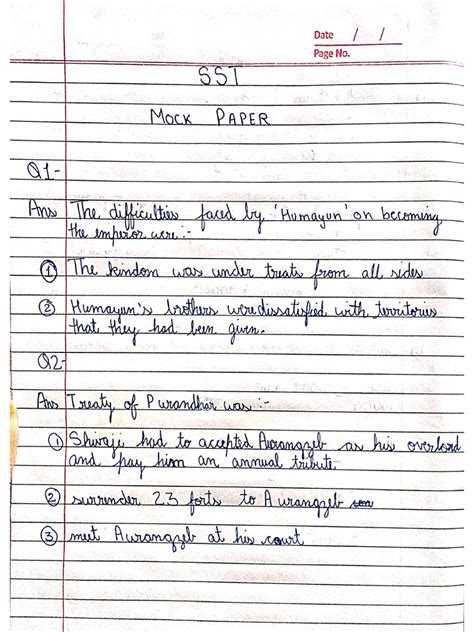 Date / /
Page No.
SST
MOCK PAPER
Q1-
Ans The difficulties faced by 'Humayun' on becoming
the emperor were :-
① The kindom was under treats from all sides
② Humayun's brothers were dissatisfied with territories
that they had been given.
Q2-
Ans Treaty of Purandhar was :-
① Shivaji had to accepted Aurangzeb as his overlord
and pay him an annual tribute.
② surrender 23 forts to Aurangzeb
③ meet Aurangzeb at his court